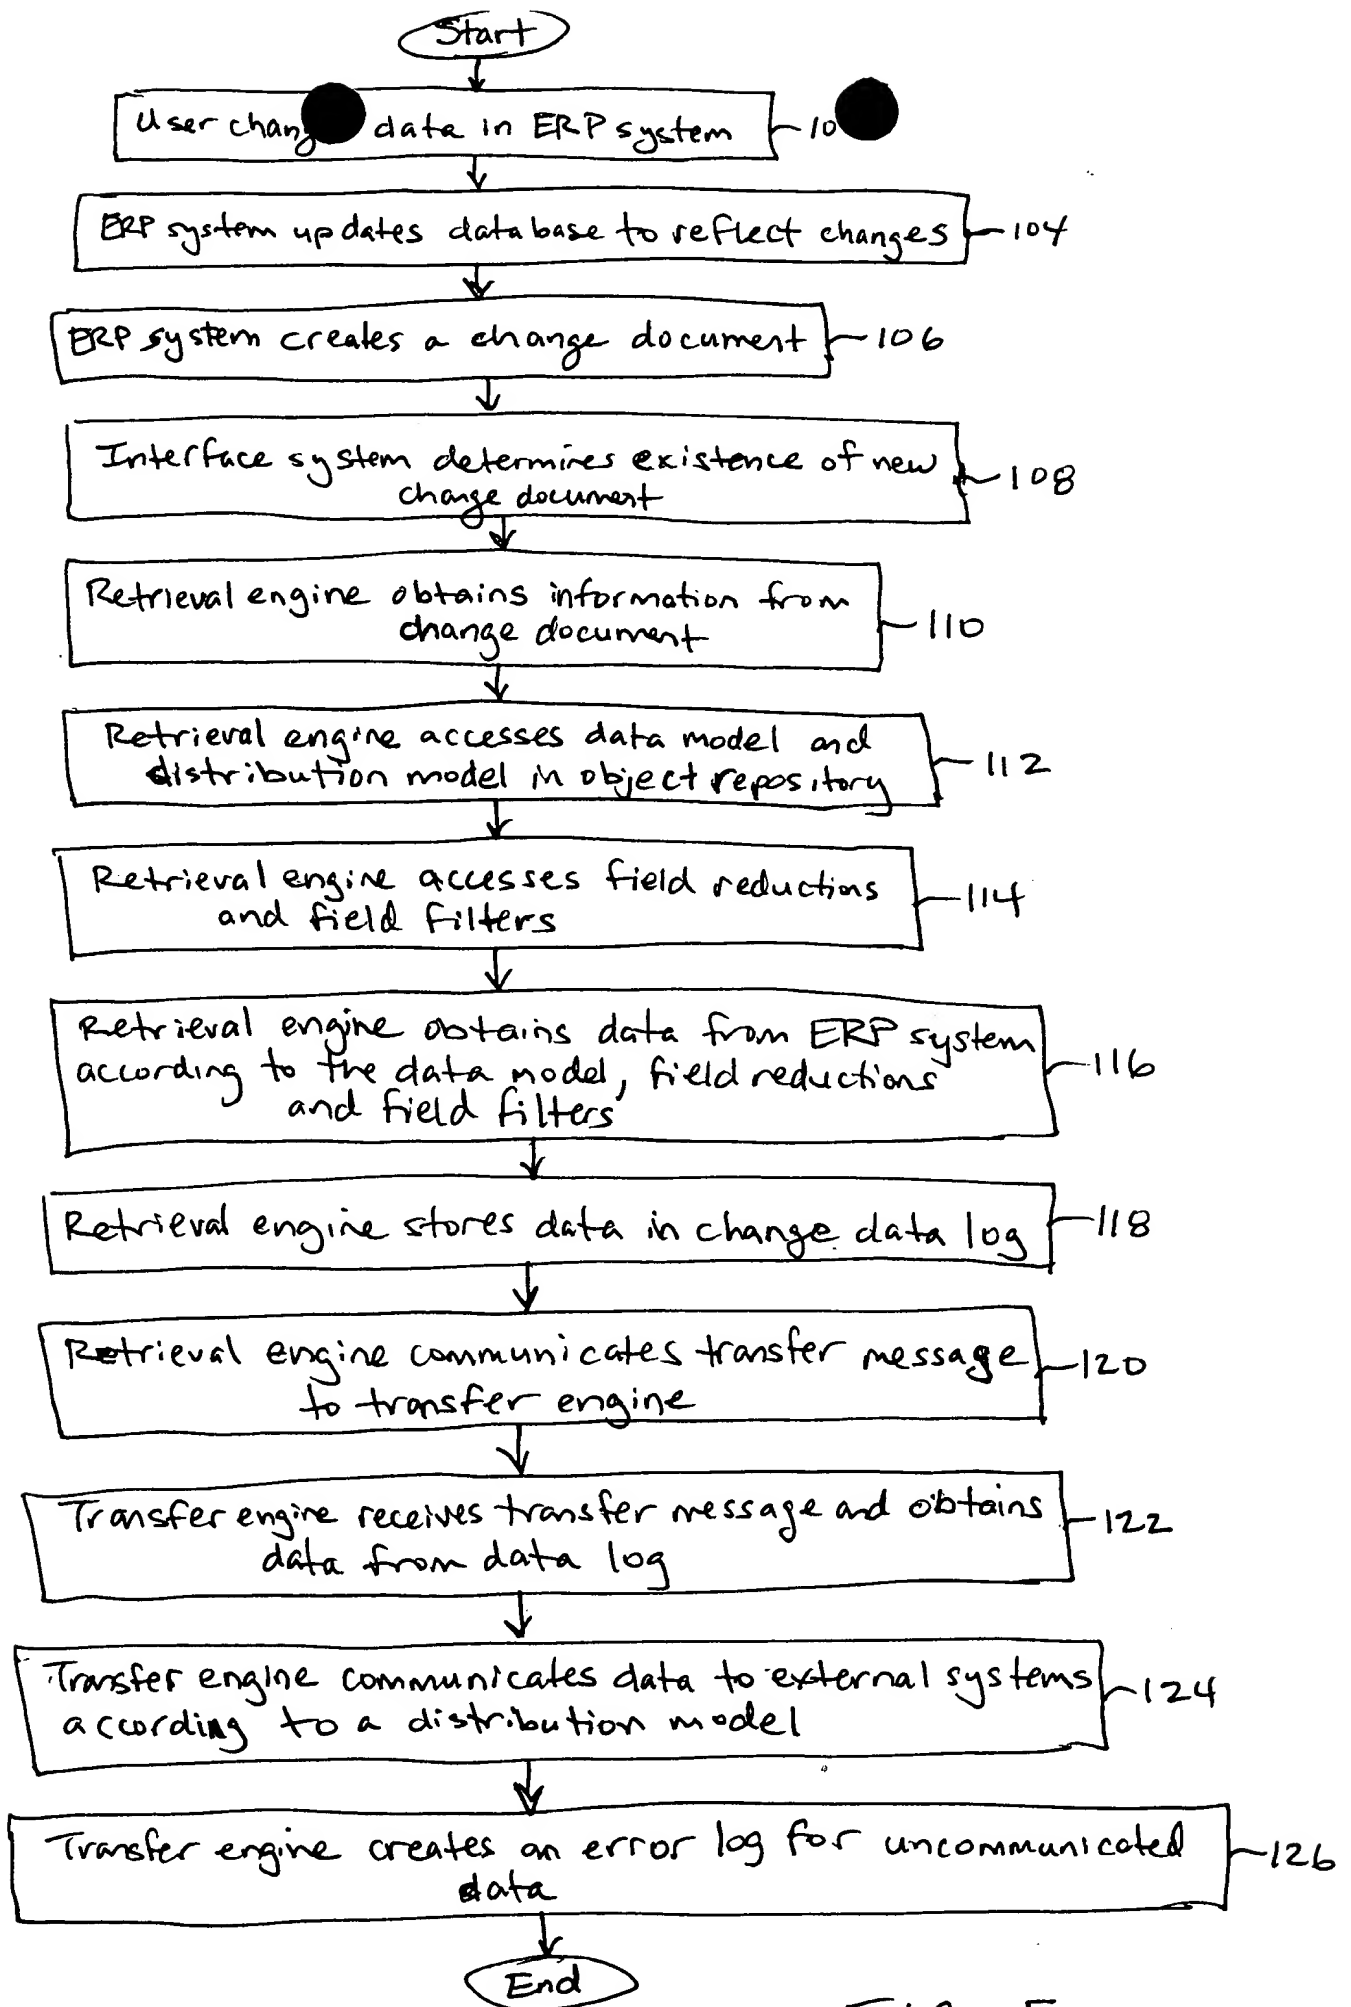 Start
User chang data in ERP system 10
ERP system updates database to reflect changes 104
ERP system creates a change document 106
Interface system determines existence of new
change document 108
Retrieval engine obtains information from
change document 110
Retrieval engine accesses data model and
distribution model in object repository 112
Retrieval engine accesses field reductions
and field filters 114
Retrieval engine obtains data from ERP system
according to the data model, field reductions
and field filters 116
Retrieval engine stores data in change data log 118
Retrieval engine communicates transfer message
to transfer engine 120
Transfer engine receives transfer message and obtains
data from data log 122
Transfer engine communicates data to external systems
according to a distribution model 124
Transfer engine creates an error log for uncommunicated
data 126
End